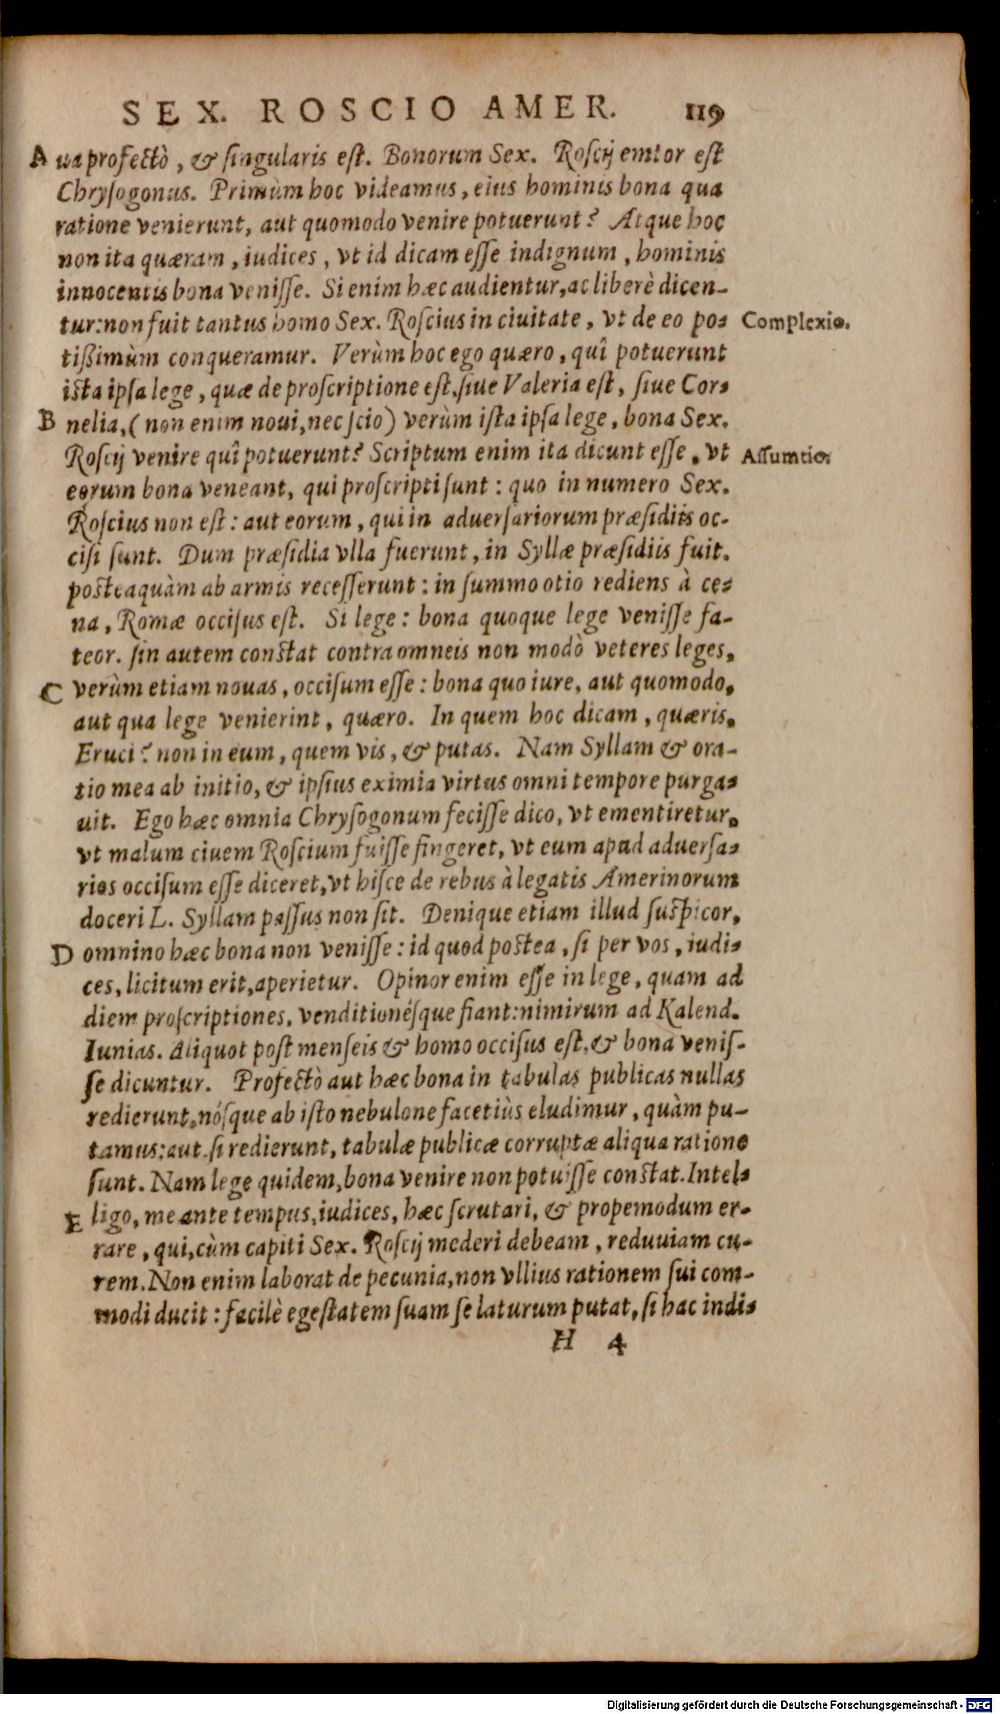 SEX. ROSCIO AMER. 119
A ua profectò, & singularis est. Bonorum Sex. Roscij emtor est
Chrysogonus. Primùm hoc videamus, eius hominis bona qua
ratione venierunt, aut quomodo venire potuerunt? Atque hoc
non ita quæram, iudices, vt id dicam esse indignum, hominis
innocentis bona venisse. Si enim hæc audientur, ac liberè dicen-
tur: non fuit tantus homo Sex. Roscius in ciuitate, vt de eo po- Complexio.
tißimùm conqueramur. Verùm hoc ego quæro, quî potuerunt
ista ipsa lege, quæ de proscriptione est, siue Valeria est, siue Cor-
B nelia, (non enim noui, nec scio) verùm ista ipsa lege, bona Sex.
Roscij venire quî potuerunt? Scriptum enim ita dicunt esse, vt Assumtio.
eorum bona veneant, qui proscripti sunt: quo in numero Sex.
Roscius non est: aut eorum, qui in aduersariorum præsidiis oc-
cisi sunt. Dum præsidia vlla fuerunt, in Syllæ præsidiis fuit.
posteaquàm ab armis recesserunt: in summo otio rediens à ce-
na, Romæ occisus est. Si lege: bona quoque lege venisse fa-
teor. sin autem constat contra omneis non modò veteres leges,
C verùm etiam nouas, occisum esse: bona quo iure, aut quomodo,
aut qua lege venierint, quæro. In quem hoc dicam, quæris,
Eruci? non in eum, quem vis, & putas. Nam Syllam & ora-
tio mea ab initio, & ipsius eximia virtus omni tempore purga-
uit. Ego hæc omnia Chrysogonum fecisse dico, vt ementiretur,
vt malum ciuem Roscium fuisse fingeret, vt eum apud aduersa-
rios occisum esse diceret, vt hisce de rebus à legatis Amerinorum
doceri L. Syllam passus non sit. Denique etiam illud suspicor,
D omnino hæc bona non venisse: id quod postea, si per vos, iudi-
ces, licitum erit, aperietur. Opinor enim esse in lege, quam ad
diem proscriptiones, venditionésque fiant: nimirum ad Kalend.
Iunias. Aliquot post menseis & homo occisus est, & bona venis-
se dicuntur. Profectò aut hæc bona in tabulas publicas nullas
redierunt, nósque ab isto nebulone facetiùs eludimur, quàm pu-
tamus: aut, si redierunt, tabulæ publicæ corruptæ aliqua ratione
sunt. Nam lege quidem, bona venire non potuisse constat. Intel-
E ligo, me ante tempus, iudices, hæc scrutari, & propemodum er-
rare, qui, cùm capiti Sex. Roscij mederi debeam, reduuiam cu-
rem. Non enim laborat de pecunia, non vllius rationem sui com-
modi ducit: facilè egestatem suam se laturum putat, si hac indi-
H 4
Digitalisierung gefördert durch die Deutsche Forschungsgemeinschaft - DFG